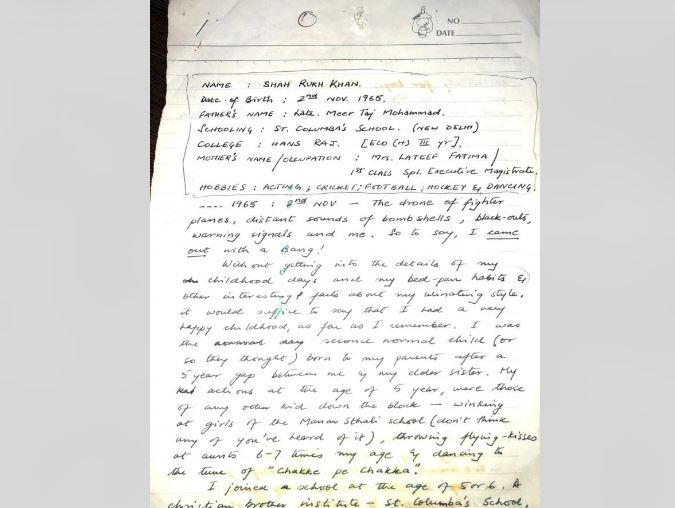 NO
DATE
NAME : SHAH RUKH KHAN.
Date of Birth : 2nd NOV. 1965.
FATHER'S NAME : Late. Meer Taj Mohammad.
SCHOOLING : ST. COLUMBA'S SCHOOL. (NEW DELHI)
COLLEGE : HANS RAJ. [ECO (H) III yr].
MOTHER'S NAME/OCCUPATION : Mrs. LATEEF FATIMA/
1st CLASS Spl. Executive Magistrate.
HOBBIES : ACTING; CRICKET; FOOTBALL; HOCKEY & DANCING.
---- 1965 : 2nd NOV — The drone of fighter
planes, distant sounds of bombshells, black-outs,
warning signals and me. So to say, I came
out with a Bang!
Without getting into the details of my
childhood days and my bed-pan habits &
other interesting facts about my urinating style,
it would suffice to say that I had a very
happy childhood, as far as I remember. I was
the second normal child (or
so they thought) born to my parents after a
5 year gap between me & my elder sister. My
actions at the age of 5 year, were those
of any other kid down the block — winking
at girls of the Manav Sthali school (don't think
any of you've heard of it), throwing flying-kisses
at aunts 6-7 times my age & dancing to
the tune of "Chakke pe Chakka."
I joined a school at the age of 5 or 6. A
christian brother institute — St. Columba's School,